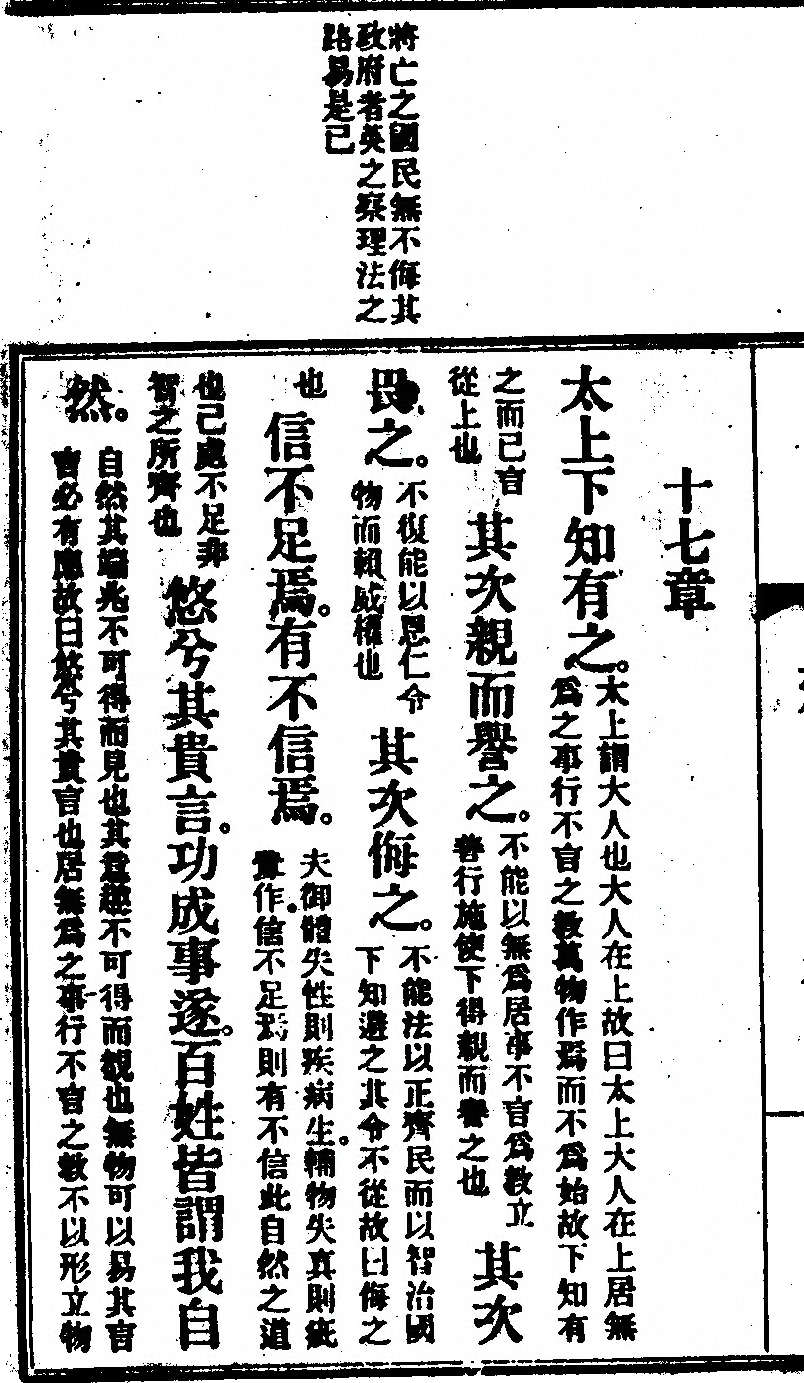 將亡之國民無不侮其
政府者英之察理法之
路易是已
十七章
太上下知有之。
太上謂大人也大人在上故曰太上大人在上居無
爲之事行不言之教萬物作焉而不爲始故下知有
之而已言
從上也
其次親而譽之。
不能以無爲居事不言爲教立
善行施使下得親而譽之也
其次
畏之。
不復能以恩仁令
物而賴威權也
其次侮之。
不能法以正齊民而以智治國
下知避之其令不從故曰侮之
也
信不足焉。有不信焉。
夫御體失性則疾病生。輔物失真則疵
釁作。信不足焉則有不信此自然之道
也已處不足非
智之所齊也
悠兮其貴言。功成事遂。百姓皆謂我自
然。
自然其端兆不可得而見也其意趣不可得而覩也無物可以易其言
言必有應故曰悠兮其貴言也居無爲之事行不言之教不以形立物